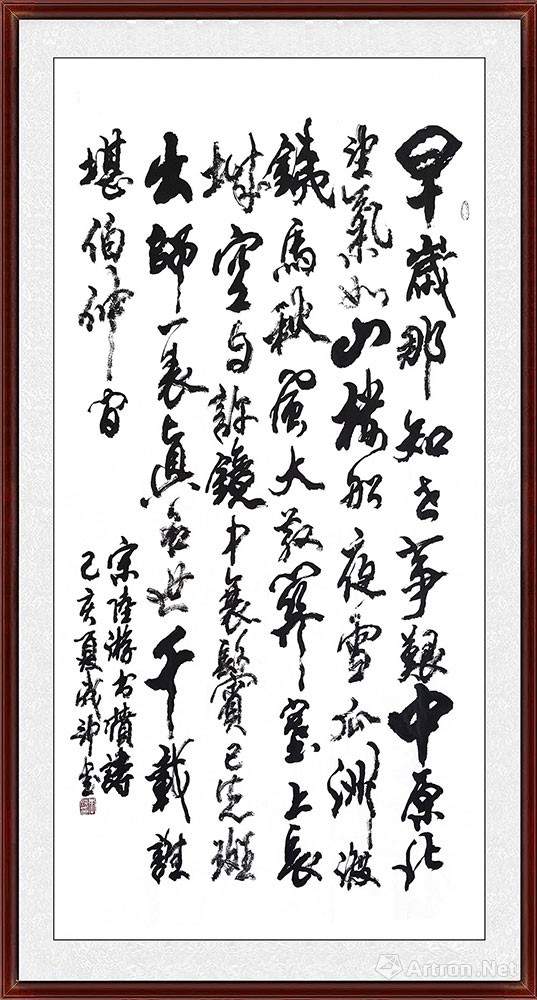 早歲那知世事艱中原北
望氣如山樓船夜雪瓜洲渡
鐵馬秋風大散關塞上長
城空自許鏡中衰鬢已先斑
出師一表真名世千載誰
堪伯仲間
宋陸游書憤詩
己亥夏成書
Artron.Net